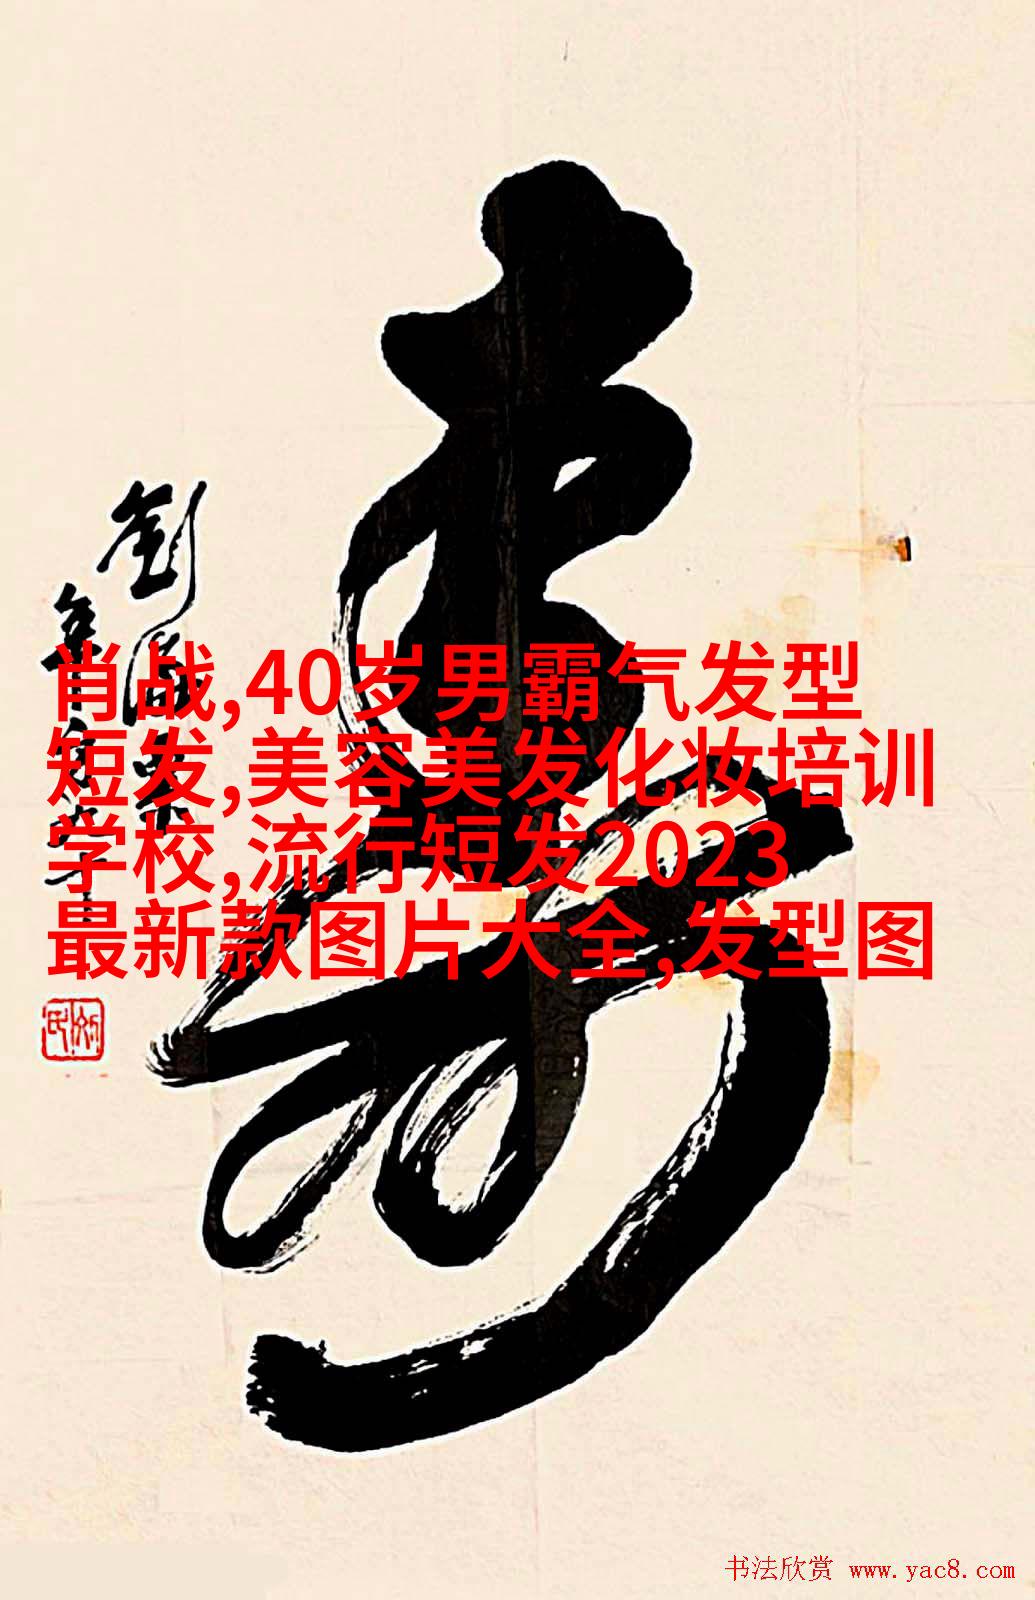 寿
刘海粟
年方八十
肖战,40岁男霸气发型
短发,美容美发化妆培训
学校,流行短发2023
最新款图片大全,发型图
书法欣赏 www.yac8.com